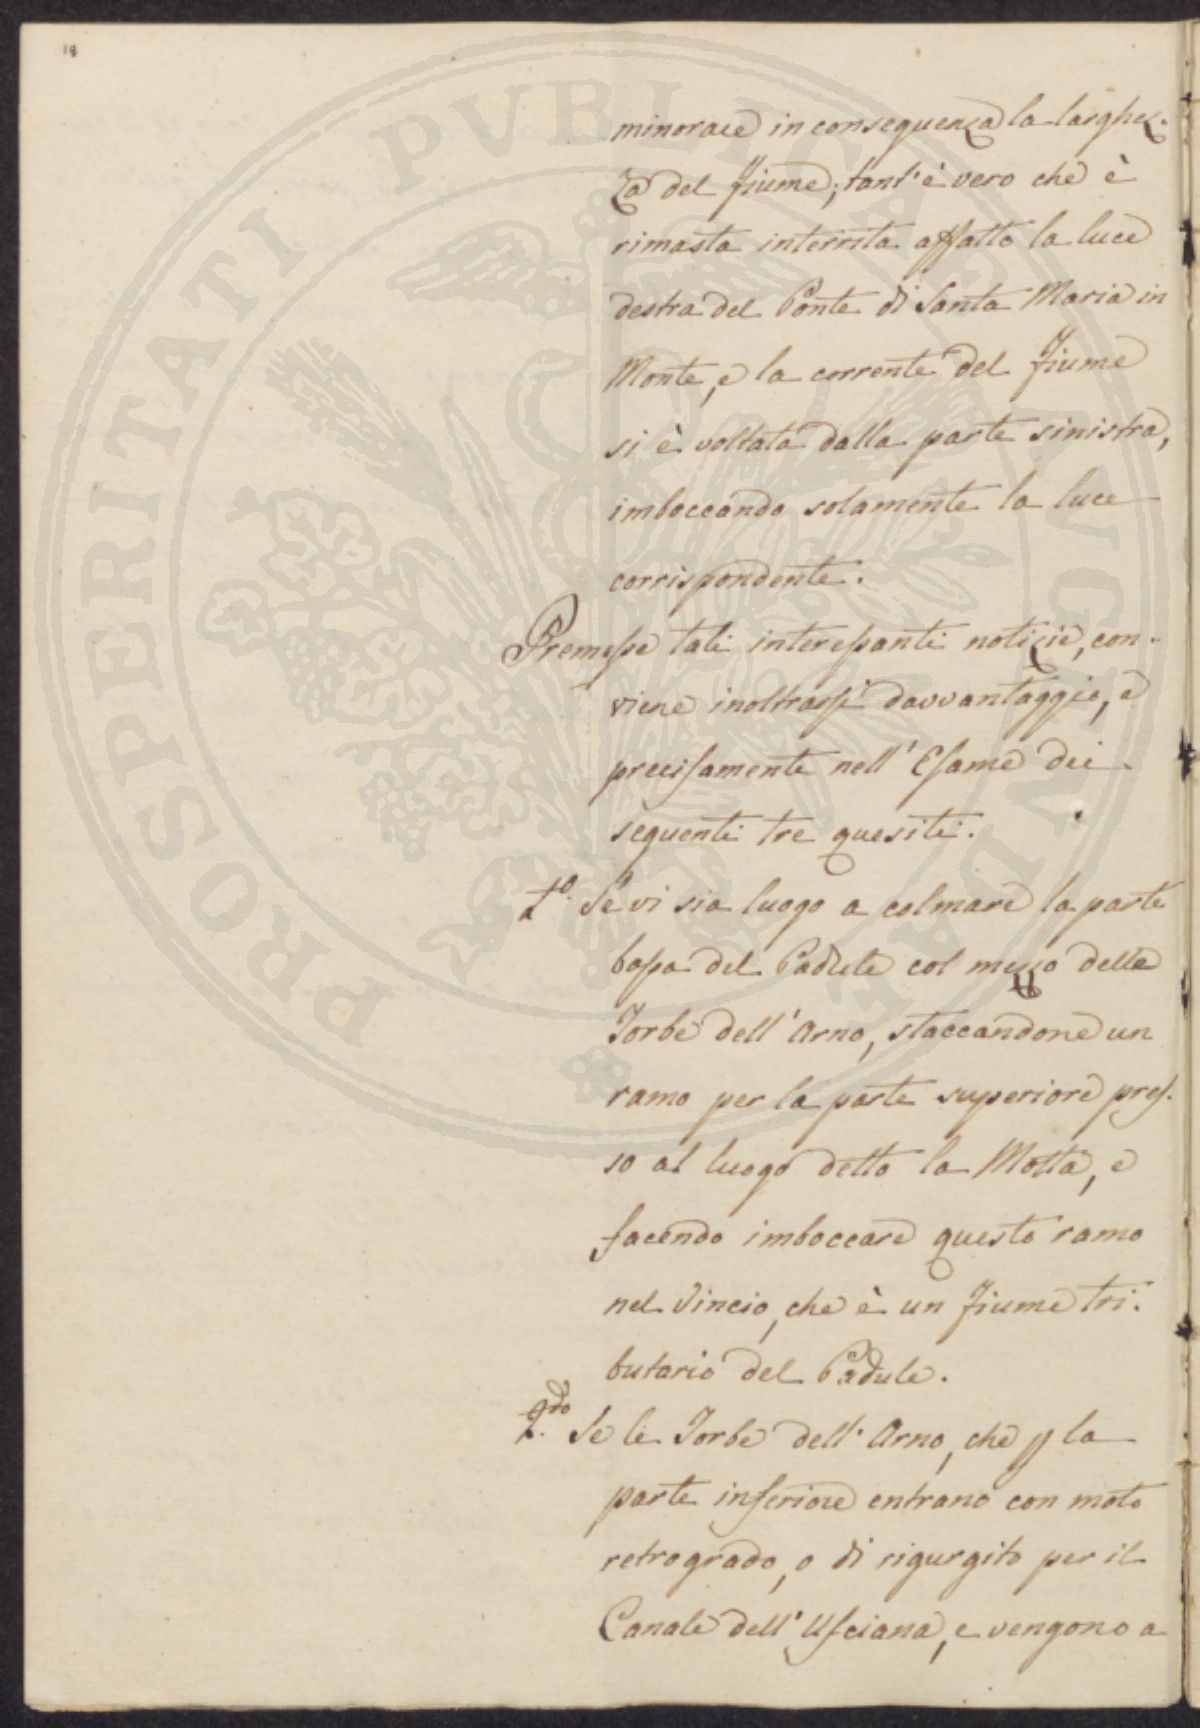 18
PROSPERITATI PVBLICAE AVGENDAE
minorare in conseguenza la larghez-
za del fiume; tant'è vero che è
rimasta interrita affatto la luce
destra del Ponte di Santa Maria in
Monte, e la corrente del fiume
si è voltata dalla parte sinistra,
imboccando solamente la luce
corrispondente.
Premesse tali interessanti notizie, con-
viene inoltrarsi davvantaggio, e
precisamente nell'Esame dei
seguenti tre quesiti.
1º. Se vi sia luogo a colmare la parte
bassa del Padule col mezzo delle
Torbe dell'Arno, staccandone un
ramo per la parte superiore pres-
so al luogo detto la Motta, e
facendo imboccare questo ramo
nel Vincio, che è un fiume tri-
butario del Padule.
2.do Se le Torbe dell'Arno, che p la
parte inferiore entrano con moto
retrogrado, o di rigurgito per il
Canale dell'Usciana, e vengono a